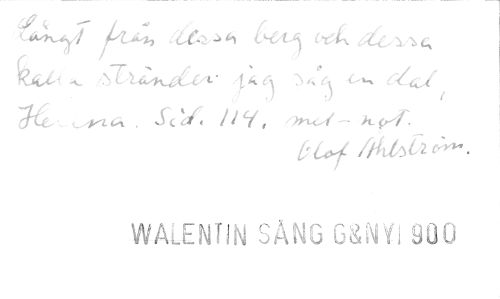 Långt från dessa berg och dessa
kalla stränder jag såg en dal,
Helena. Sid. 114. mel-not.
Olof Åhlström.
WALENTIN SÅNG G&NYI 900